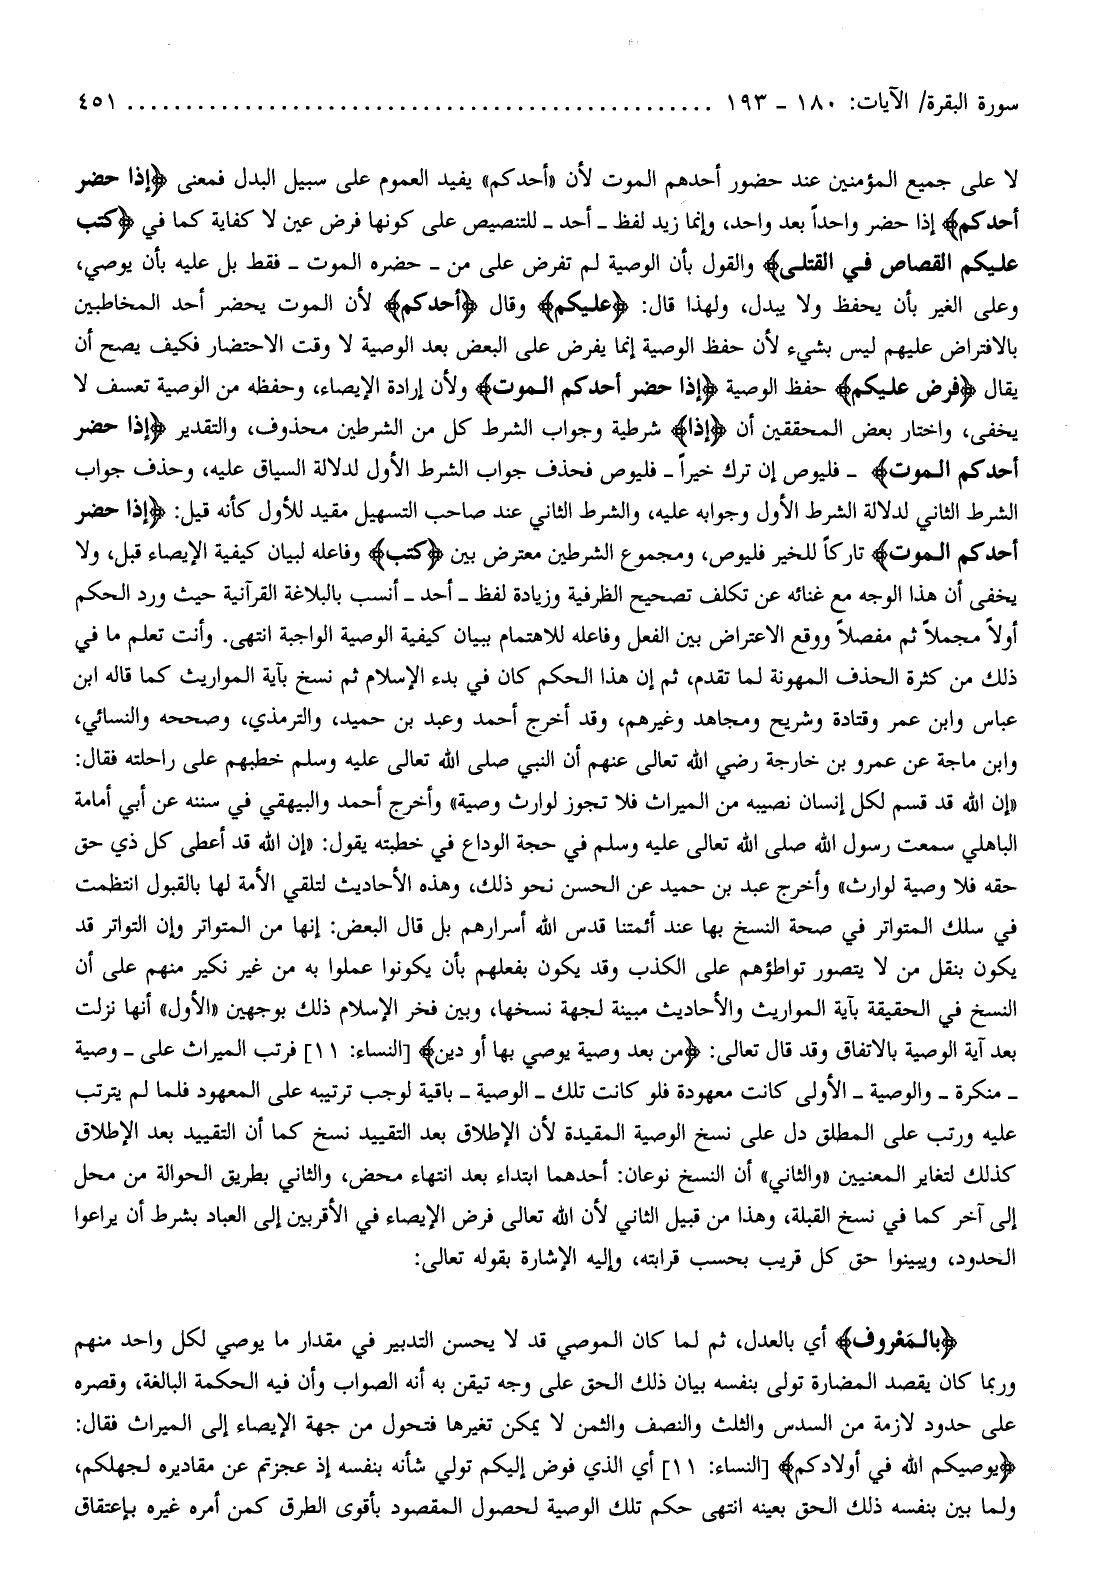 سورة البقرة/ الآيات: ١٨٠ ـ ١٩٣ .................................................. ٤٥١
لا على جميع المؤمنين عند حضور أحدهم الموت لأن «أحدكم» يفيد العموم على سبيل البدل فمعنى ﴿إذا حضر
أحدكم﴾ إذا حضر واحداً بعد واحد، وإنما زيد لفظ ـ أحد ـ للتنصيص على كونها فرض عين لا كفاية كما في ﴿كتب
عليكم القصاص في القتلى﴾ والقول بأن الوصية لم تفرض على من ـ حضره الموت ـ فقط بل عليه بأن يوصي،
وعلى الغير بأن يحفظ ولا يبدل، ولهذا قال: ﴿عليكم﴾ وقال ﴿أحدكم﴾ لأن الموت يحضر أحد المخاطبين
بالافتراض عليهم ليس بشيء لأن حفظ الوصية إنما يفرض على البعض بعد الوصية لا وقت الاحتضار فكيف يصح أن
يقال ﴿فرض عليكم﴾ حفظ الوصية ﴿إذا حضر أحدكم الموت﴾ ولأن إرادة الإيصاء، وحفظه من الوصية تعسف لا
يخفى، واختار بعض المحققين أن ﴿إذا﴾ شرطية وجواب الشرط كل من الشرطين محذوف، والتقدير ﴿إذا حضر
أحدكم الموت﴾ ـ فليوص إن ترك خيراً ـ فليوص فحذف جواب الشرط الأول لدلالة السياق عليه، وحذف جواب
الشرط الثاني لدلالة الشرط الأول وجوابه عليه، والشرط الثاني عند صاحب التسهيل مقيد للأول كأنه قيل: ﴿إذا حضر
أحدكم الموت﴾ تاركاً للخير فليوص، ومجموع الشرطين معترض بين ﴿كتب﴾ وفاعله لبيان كيفية الإيصاء قبل، ولا
يخفى أن هذا الوجه مع غنائه عن تكلف تصحيح الظرفية وزيادة لفظ ـ أحد ـ أنسب بالبلاغة القرآنية حيث ورد الحكم
أولاً مجملاً ثم مفصلاً ووقع الاعتراض بين الفعل وفاعله للاهتمام ببيان كيفية الوصية الواجبة انتهى. وأنت تعلم ما في
ذلك من كثرة الحذف المهونة لما تقدم، ثم إن هذا الحكم كان في بدء الإسلام ثم نسخ بآية المواريث كما قاله ابن
عباس وابن عمر وقتادة وشريح ومجاهد وغيرهم، وقد أخرج أحمد وعبد بن حميد، والترمذي، وصححه والنسائي،
وابن ماجة عن عمرو بن خارجة رضي الله تعالى عنهم أن النبي صلى الله تعالى عليه وسلم خطبهم على راحلته فقال:
«إن الله قد قسم لكل إنسان نصيبه من الميراث فلا تجوز لوارث وصية» وأخرج أحمد والبيهقي في سننه عن أبي أمامة
الباهلي سمعت رسول الله صلى الله تعالى عليه وسلم في حجة الوداع في خطبته يقول: «إن الله قد أعطى كل ذي حق
حقه فلا وصية لوارث» وأخرج عبد بن حميد عن الحسن نحو ذلك، وهذه الأحاديث لتلقي الأمة لها بالقبول انتظمت
في سلك المتواتر في صحة النسخ بها عند أئمتنا قدس الله أسرارهم بل قال البعض: إنها من المتواتر وإن التواتر قد
يكون بنقل من لا يتصور تواطؤهم على الكذب وقد يكون بفعلهم بأن يكونوا عملوا به من غير نكير منهم على أن
النسخ في الحقيقة بآية المواريث والأحاديث مبينة لجهة نسخها، وبين فخر الإسلام ذلك بوجهين «الأول» أنها نزلت
بعد آية الوصية بالاتفاق وقد قال تعالى: ﴿من بعد وصية يوصي بها أو دين﴾ [النساء: ١١] فرتب الميراث على ـ وصية
ـ منكرة ـ والوصية ـ الأولى كانت معهودة فلو كانت تلك ـ الوصية ـ باقية لوجب ترتيبه على المعهود فلما لم يترتب
عليه ورتب على المطلق دل على نسخ الوصية المقيدة لأن الإطلاق بعد التقييد نسخ كما أن التقييد بعد الإطلاق
كذلك لتغاير المعنيين «والثاني» أن النسخ نوعان: أحدهما ابتداء بعد انتهاء محض، والثاني بطريق الحوالة من محل
إلى آخر كما في نسخ القبلة، وهذا من قبيل الثاني لأن الله تعالى فرض الإيصاء في الأقربين إلى العباد بشرط أن يراعوا
الحدود، ويبينوا حق كل قريب بحسب قرابته، وإليه الإشارة بقوله تعالى:
﴿بالمَعْروف﴾ أي بالعدل، ثم لما كان الموصي قد لا يحسن التدبير في مقدار ما يوصي لكل واحد منهم
وربما كان يقصد المضارة تولى بنفسه بيان ذلك الحق على وجه تيقن به أنه الصواب وأن فيه الحكمة البالغة، وقصره
على حدود لازمة من السدس والثلث والنصف والثمن لا يمكن تغيرها فتحول من جهة الإيصاء إلى الميراث فقال:
﴿يوصيكم الله في أولادكم﴾ [النساء: ١١] أي الذي فوض إليكم تولي شأنه بنفسه إذ عجزتم عن مقاديره لجهلكم،
ولما بين بنفسه ذلك الحق بعينه انتهى حكم تلك الوصية لحصول المقصود بأقوى الطرق كمن أمره غيره بإعتقاق